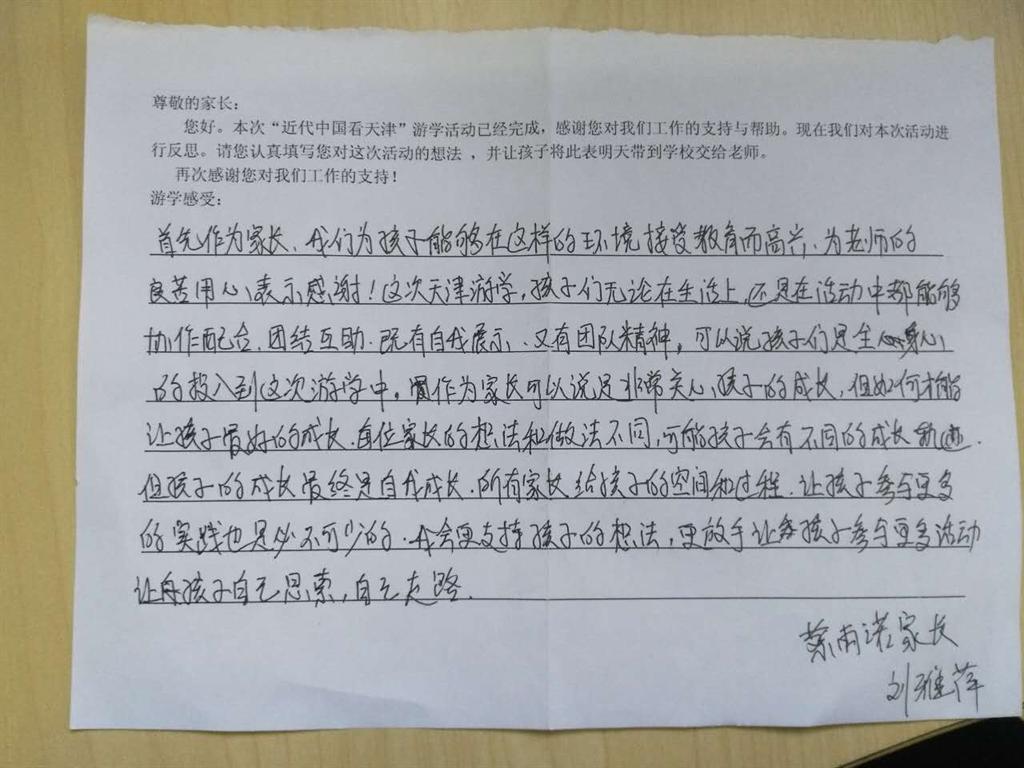 尊敬的家长：
您好。本次“近代中国看天津”游学活动已经完成，感谢您对我们工作的支持与帮助。现在我们对本次活动进
行反思。请您认真填写您对这次活动的想法 ，并让孩子将此表明天带到学校交给老师。
再次感谢您对我们工作的支持！
游学感受：
首先作为家长、我们为孩子能够在这样的环境接受教育而高兴、为老师的
良苦用心表示感谢！这次天津游学，孩子们无论在生活上，还是在活动中都能够
协作配合、团结互助、既有自我展示、又有团队精神，可以说孩子们是全身心
的投入到这次游学中。作为家长可以说是非常关心孩子的成长，但如何才能
让孩子最好的成长、每位家长的想法和做法不同，可能孩子会有不同的成长轨迹.
但孩子的成长最终是自我成长、所有家长给孩子的空间和过程、让孩子参与更多
的实践也是必不可少的、我会更支持孩子的想法，更放手让孩子参与更多活动
让孩子自己思索，自己走路.
蔡雨诺家长
刘雅萍